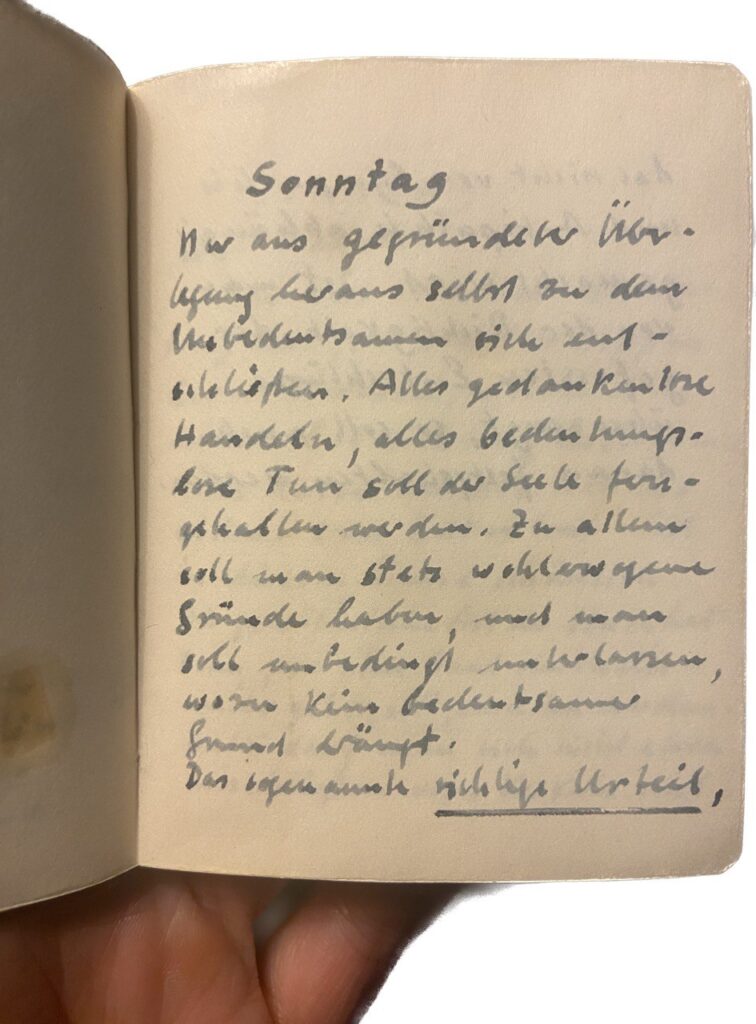 Sonntag
Nur aus gegründeter Über-
legung heraus selbst zu dem
Unbedeutsamen sich ent-
schließen. Alles gedankenlose
Handeln, alles bedeutungs-
lose Tun soll der Seele fern-
gehalten werden. Zu allem
soll man stets wohlerwogene
Gründe haben, und man
soll unbedingt unterlassen,
wozu kein bedeutsamer
Grund drängt.
Das sogenannte richtige Urteil,